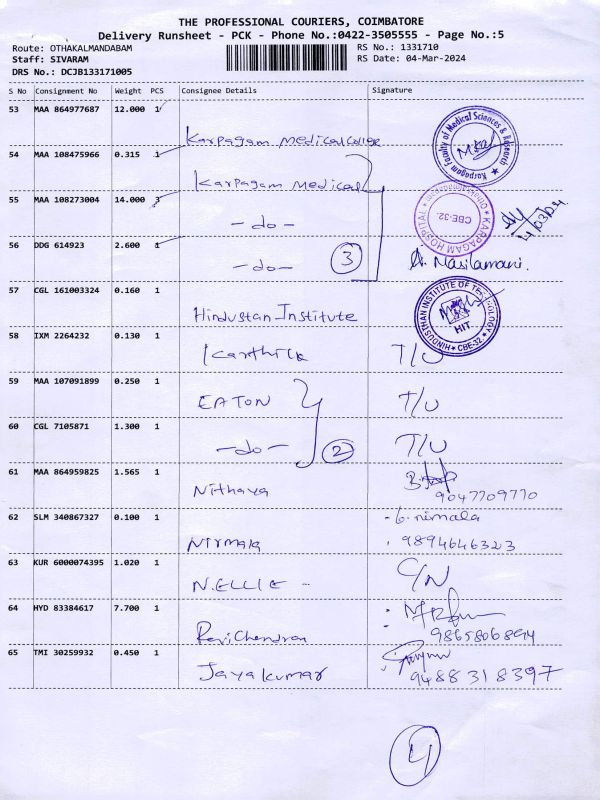 THE PROFESSIONAL COURIERS, COIMBATORE
Delivery Runsheet - PCK - Phone No.:0422-3505555 - Page No.:5
Route: OTHAKALMANDABAM
Staff: SIVARAM
DRS No.: DCJB133171005
RS No.: 1331710
RS Date: 04-Mar-2024
S No Consignment No Weight PCS Consignee Details Signature
53 MAA 864977687 12.000 1
Karpagam Medical College
Karpagam Faculty of Medical Sciences & Research
54 MAA 108475966 0.315 1
Karpagam Medical
55 MAA 108273004 14.000 3
-do-
KARPAGAM HOSPITAL
CBE-32.
56 DDG 614923 2.600 1
-do- 3
Masilamani.
57 CGL 161003324 0.160 1
Hindustan Institute
HINDUSTHAN INSTITUTE OF TECHNOLOGY
HIT
CBE-32
58 IXM 2264232 0.130 1
Karthick T/U
59 MAA 107091899 0.250 1
EATON T/U
60 CGL 7105871 1.300 1
-do- 2 T/U
61 MAA 864959825 1.565 1
Nithaya 9047709770
62 SLM 340867327 0.100 1
Nirmala
nirmala
9894646323
63 KUR 6000074395 1.020 1
N.ELLIE C/N
64 HYD 83384617 7.700 1
RaviChendran 9865806894
65 TMI 30259932 0.450 1
Jayakumar 9488318397
4